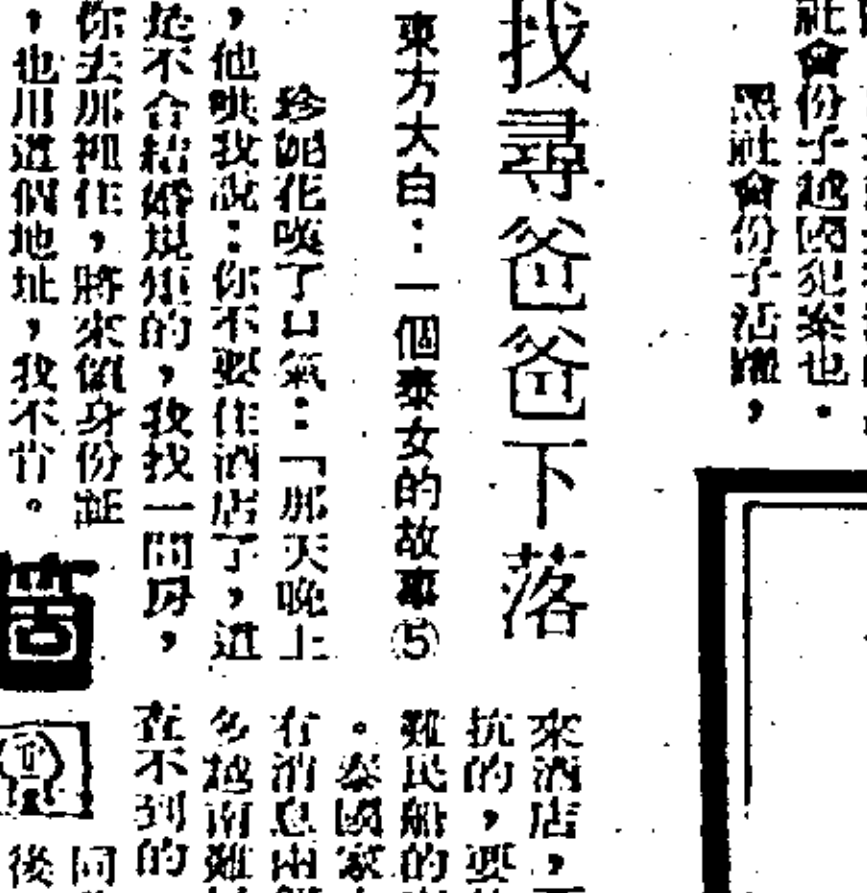 社會份子越國犯案也。
黑社會份子活躍，
找尋爸爸下落
東方大白：一個泰女的故事⑤
珍妮花嘆了口氣：「那天晚上
，他哄我說：你不要住酒店了，這
是不合結婚規矩的，我找一間房，
你去那裡住，將來領身份証
，也用這個地址，我不肯。
來酒店，
抗的，要
難民船的
。泰國家
有消息
多越南難
在不到的
同
後